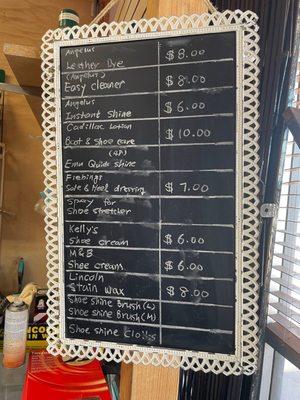 Angelus
Leather Dye $8.00
(Angelus)
Easy cleaner $8.00
Angelus
Instant Shine $6.00
Cadillac Lotion
Boot & Shoe care $10.00
(GP)
Emu Quick shine
Fiebings
Sole & Heel dressing $7.00
Spray for
Shoe stretcher
Kelly's
Shoe cream $6.00
M&B
Shoe cream $6.00
Lincoln
Stain wax $8.00
Shoe shine Brush(L)
Shoe shine Brush(M)
Shoe shine cloths